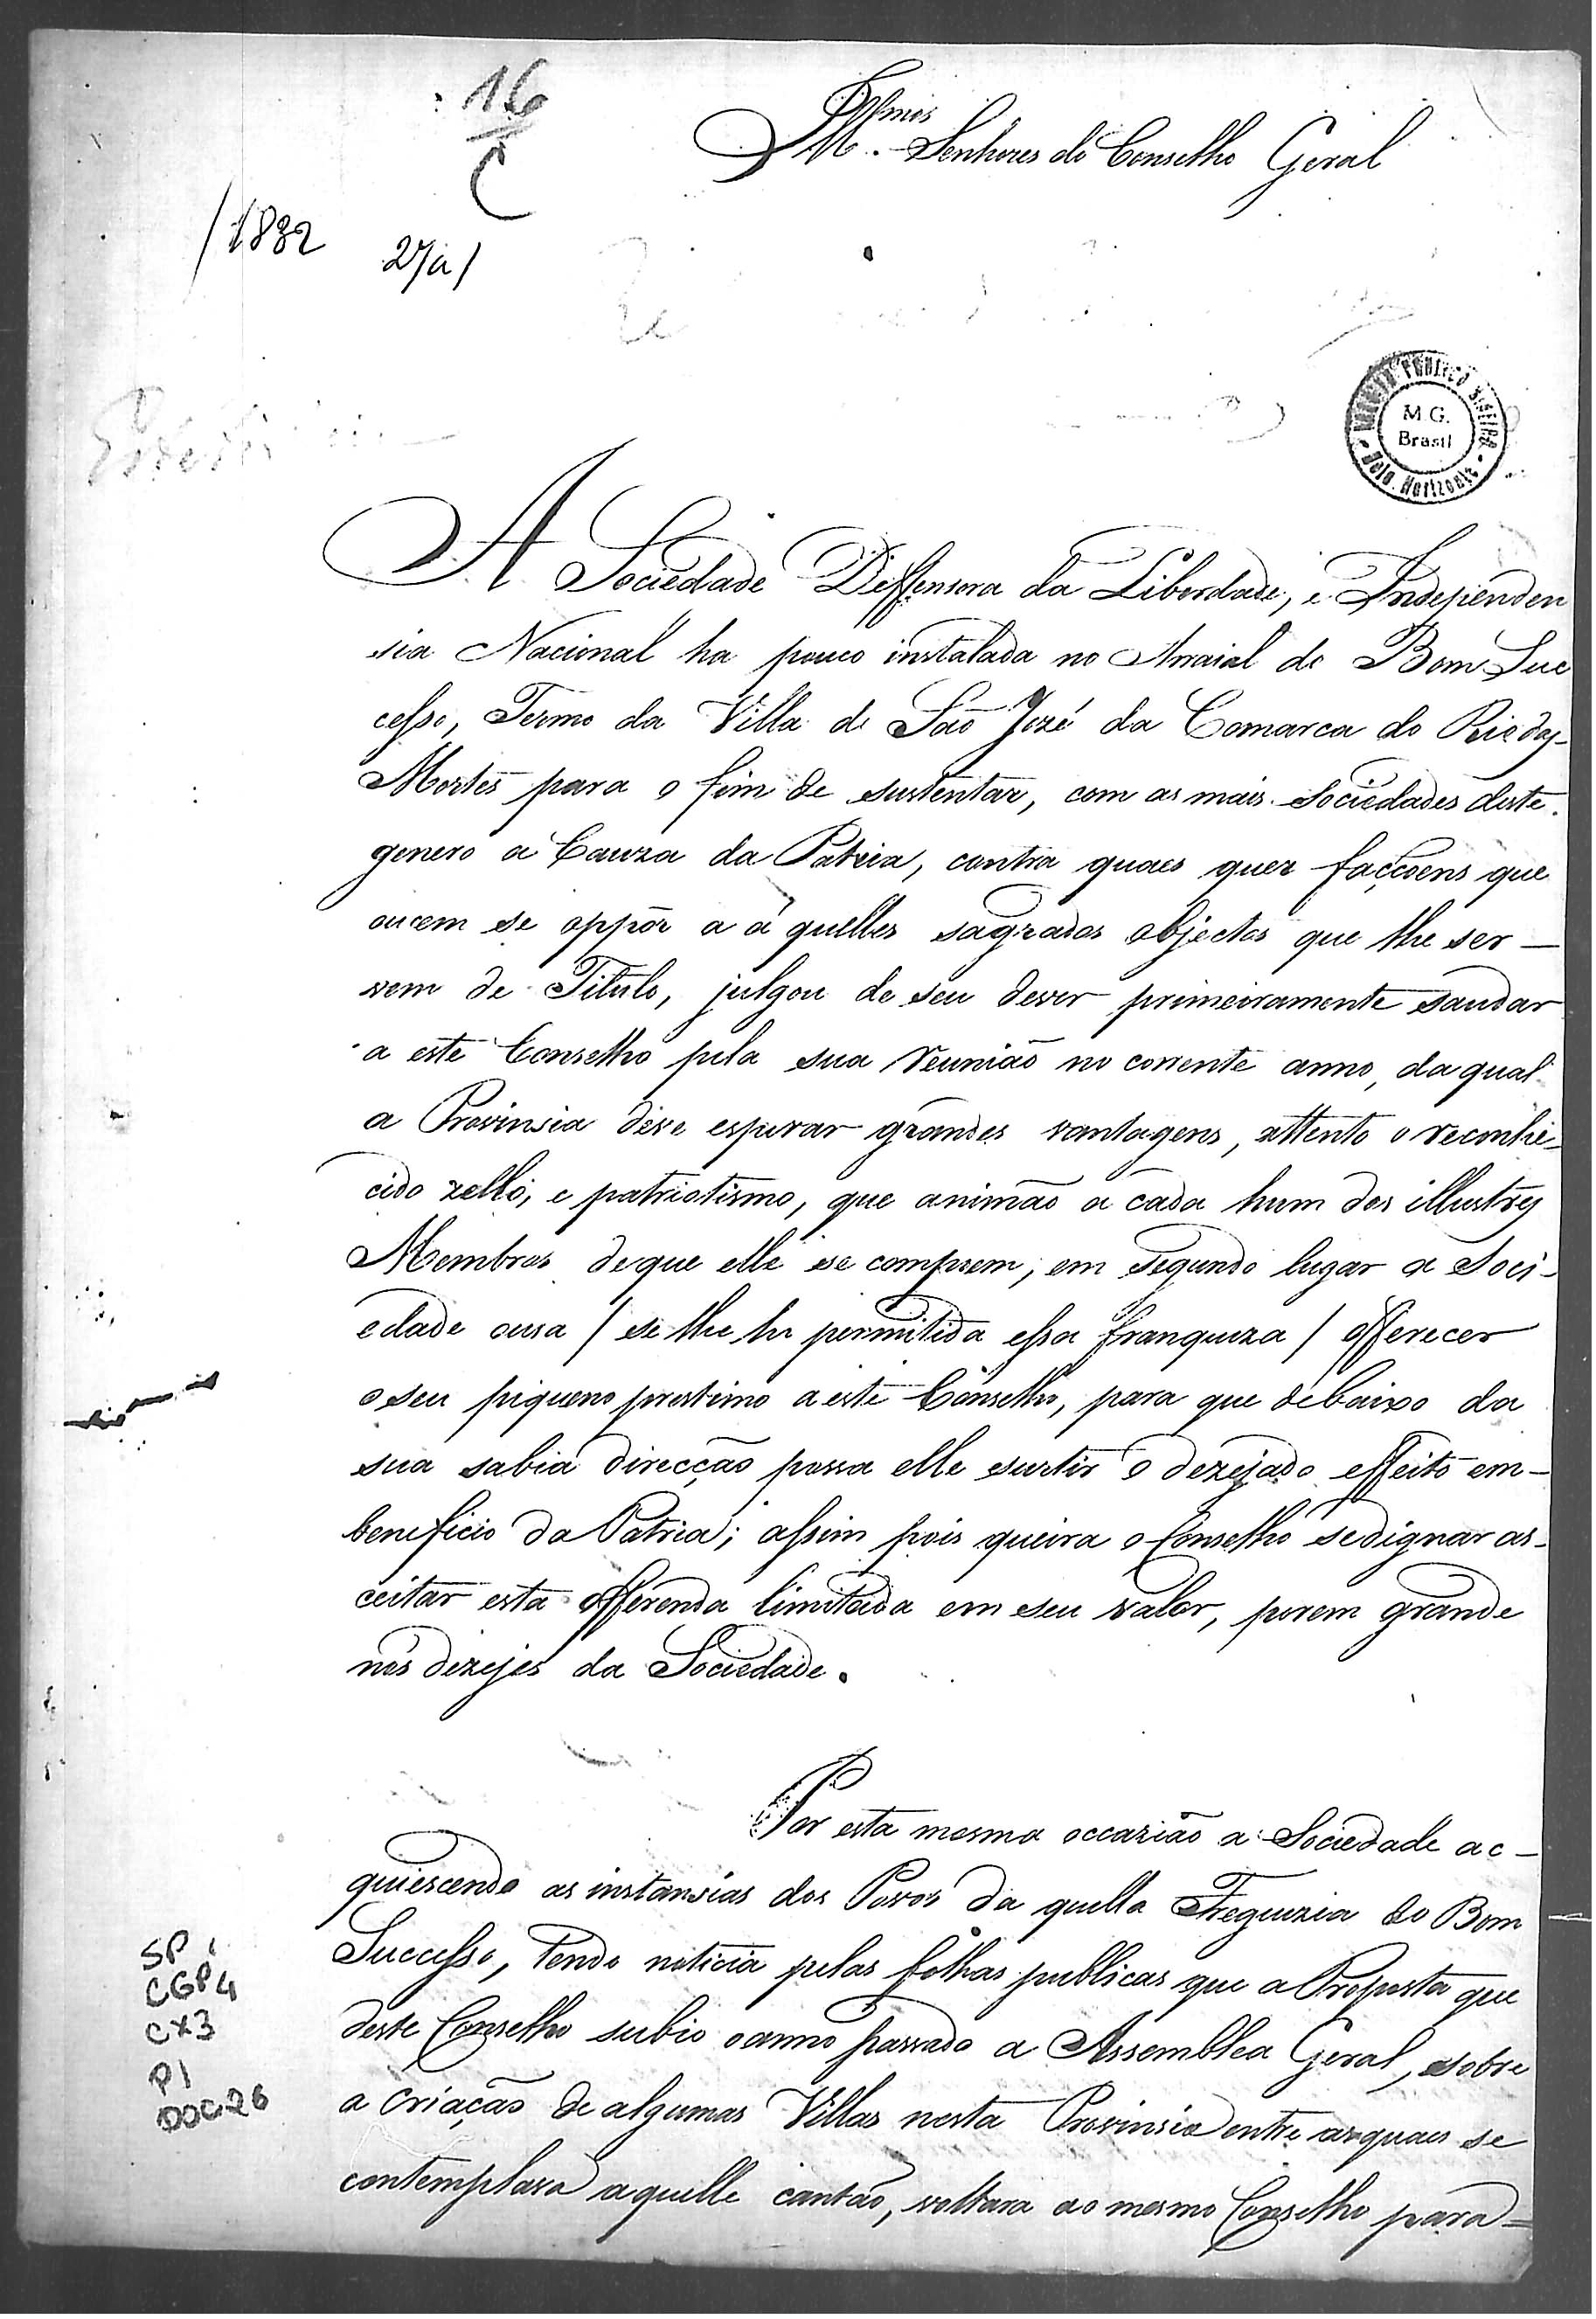 16
C
Illmos
Senhores do Conselho Geral
/1832
27/a/
ARQUIVO PUBLICO MINEIRO
M.G.
Brasil
Belo Horizonte
A Sociedade Deffensora da Liberdade, e Independen
sia Nacional ha pouco instalada no Arraial do Bom Suc
cesso, Termo da Villa de São Jozé da Comarca do Rio das
Mortes para o fim de sustentar, com as mais Sociedades deste
genero a Cauza da Patria, contra quaes quer facçoens que
ousem se oppôr a á quelles sagrados objectos que lhe ser-
vem de Titulo, julgou de seu dever primeiramente saudar
a este Conselho pela sua reunião no corrente anno, da qual
a Provinsia deve esperar grandes vantagens, attento o reconhe-
cido zello, e patriotismo, que animão a cada hum dos illustres
Membros de que elle se compoem; em segundo lugar a Soci-
edade ousa / se lhe he permitida essa franqueza / offerecer
o seu piqueno prestimo a este Conselho, para que debaixo da
sua sabia direcção possa elle surtir o dezejado effeito em-
beneficio da Patria; assim pois queira o Conselho se dignar as-
ceitar esta offerenda limitada em seu valor, porem grande
nos dezejos da Sociedade.
Por esta mesma occazião a Sociedade ac-
quiescendo as instansias dos Povos da quella Freguezia do Bom
Successo, tendo noticia pelas folhas publicas que a Proposta que
deste Conselho subio o anno passado a Assemblea Geral, sobre
a criação de algumas Villas nesta Provinsia entre as quaes se
contemplava aquelle cantão, voltara ao mesmo Conselho para=
SP
CGP4
CX3
P1
DOC26